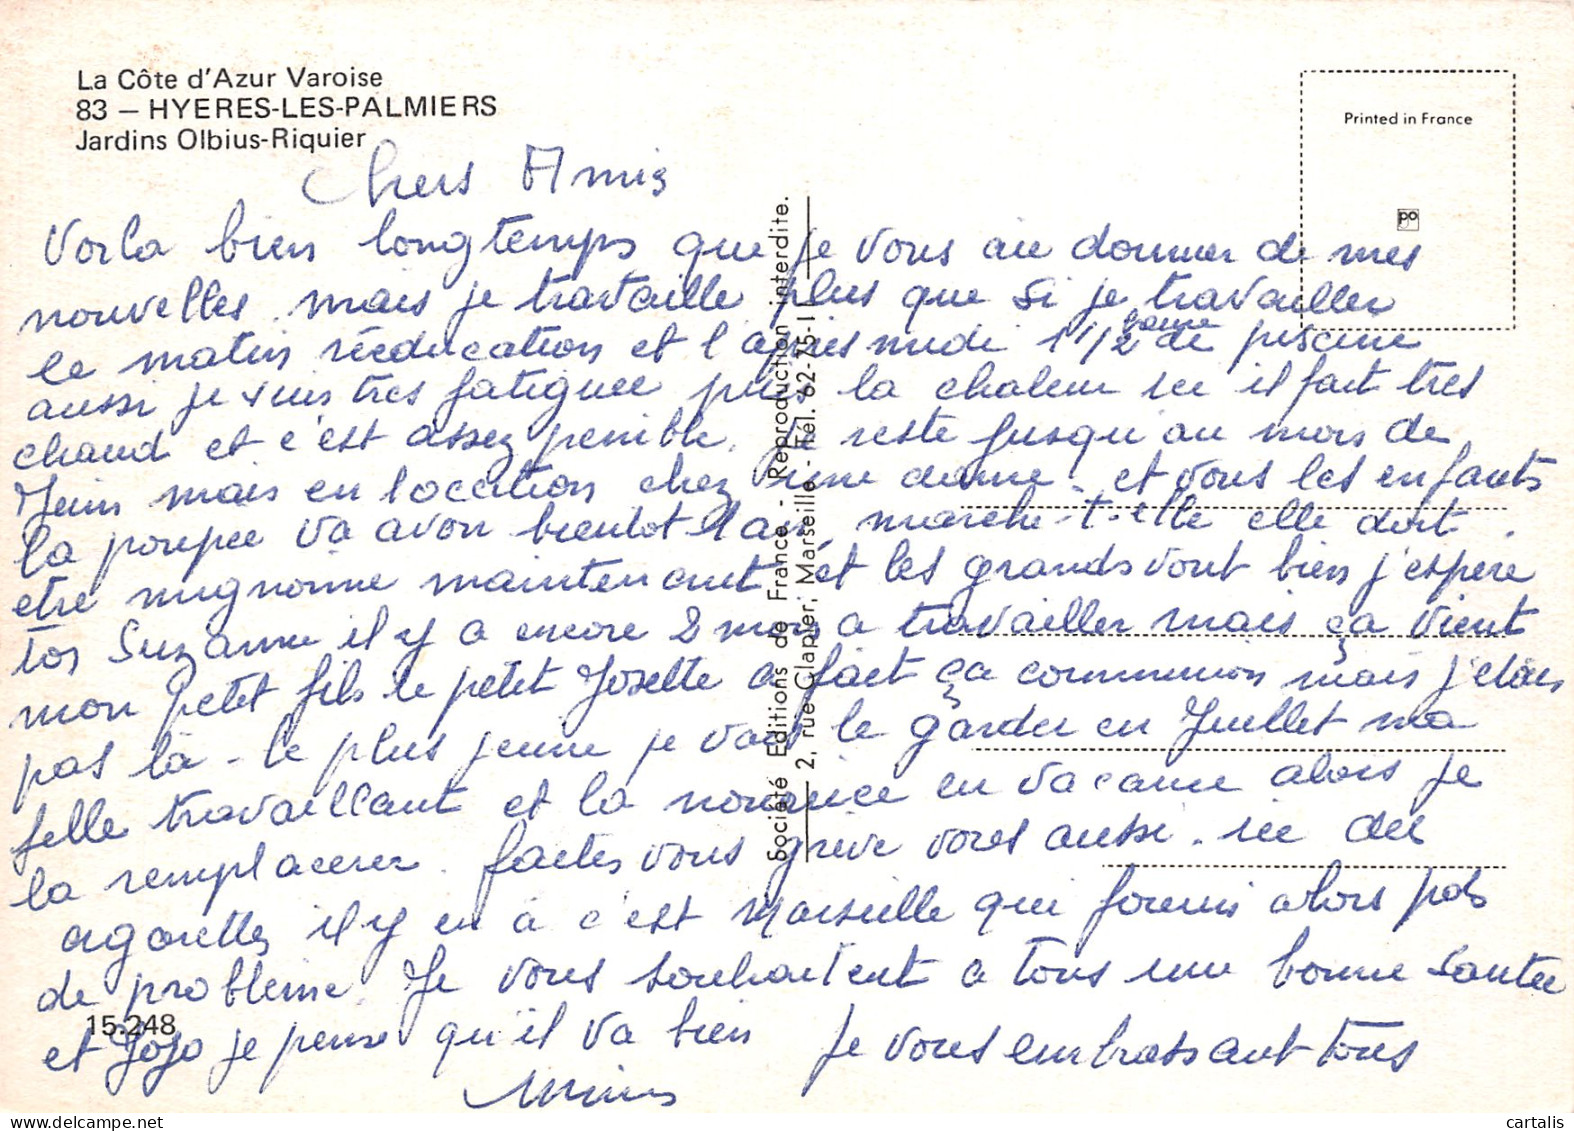 La Côte d'Azur Varoise
83 — HYERES-LES-PALMIERS
Jardins Olbius-Riquier
Printed in France
po
Chers Amis
Voila bien longtemps que je vous ai donner de mes
nouvelles mais je travaille plus que si je travailler
le matin rééducation et l'après midi 1 1/2 de piscine
aussi je suis tres fatiguee puis la chaleur ici il fait tres
chaud et c'est assez penible. Je reste jusqu'au mois de
Juin mais en location chez une dame. et vous les enfants
la poupee va avoir bientot 1 an, marche-t-elle elle doit
etre mignonne maintenant et les grands vont bien j'espere
toi Suzanne il y a encore 2 mois a travailler mais ça vient
mon petit fils le petit Josette a fait ça communion mais j'etais
pas là - le plus jeune je vais le garder en Juillet ma
fille travaillant et la nourrice en vacance alors je
la remplacerer. faites vous grève vous aussi. ici des
cigarettes il y en à c'est Marseille qui fournis alors pas
de probleme. Je vous souhaitent a tous une bonne Santee
et Jojo je pense qu'il va bien Je vous embrassant tous
Mimi
15.248
Société Editions de France - Reproduction interdite.
2, rue Clapier, Marseille - Tél. 62-75-11
cartalis